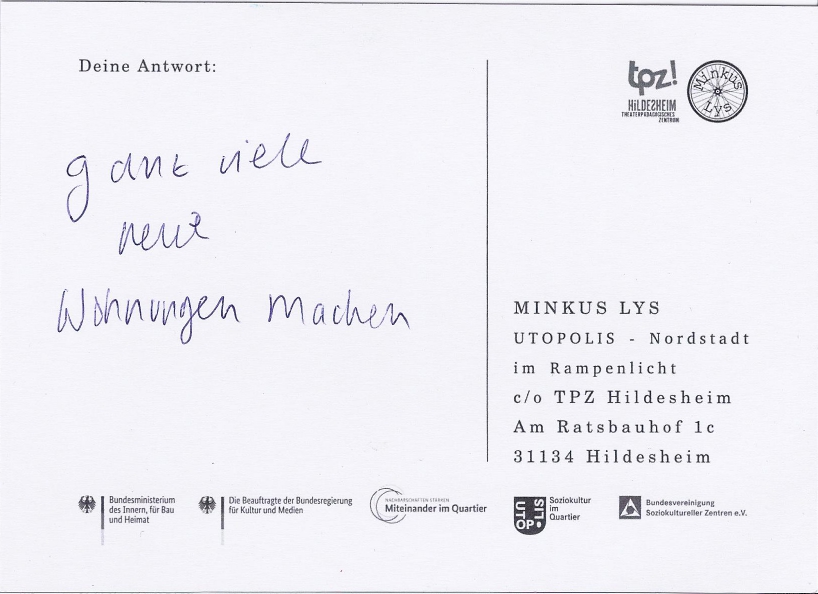 Deine Antwort:
ganz viele
neue
Wohnungen machen
tpz!
HILDESHEIM
THEATERPÄDAGOGISCHES
ZENTRUM
Minkus
Lys
MINKUS LYS
UTOPOLIS - Nordstadt
im Rampenlicht
c/o TPZ Hildesheim
Am Ratsbauhof 1c
31134 Hildesheim
Bundesministerium
des Innern, für Bau
und Heimat
Die Beauftragte der Bundesregierung
für Kultur und Medien
NACHBARSCHAFTEN STÄRKEN
Miteinander im Quartier
UTOPOLIS
Soziokultur
im
Quartier
Bundesvereinigung
Soziokultureller Zentren e.V.